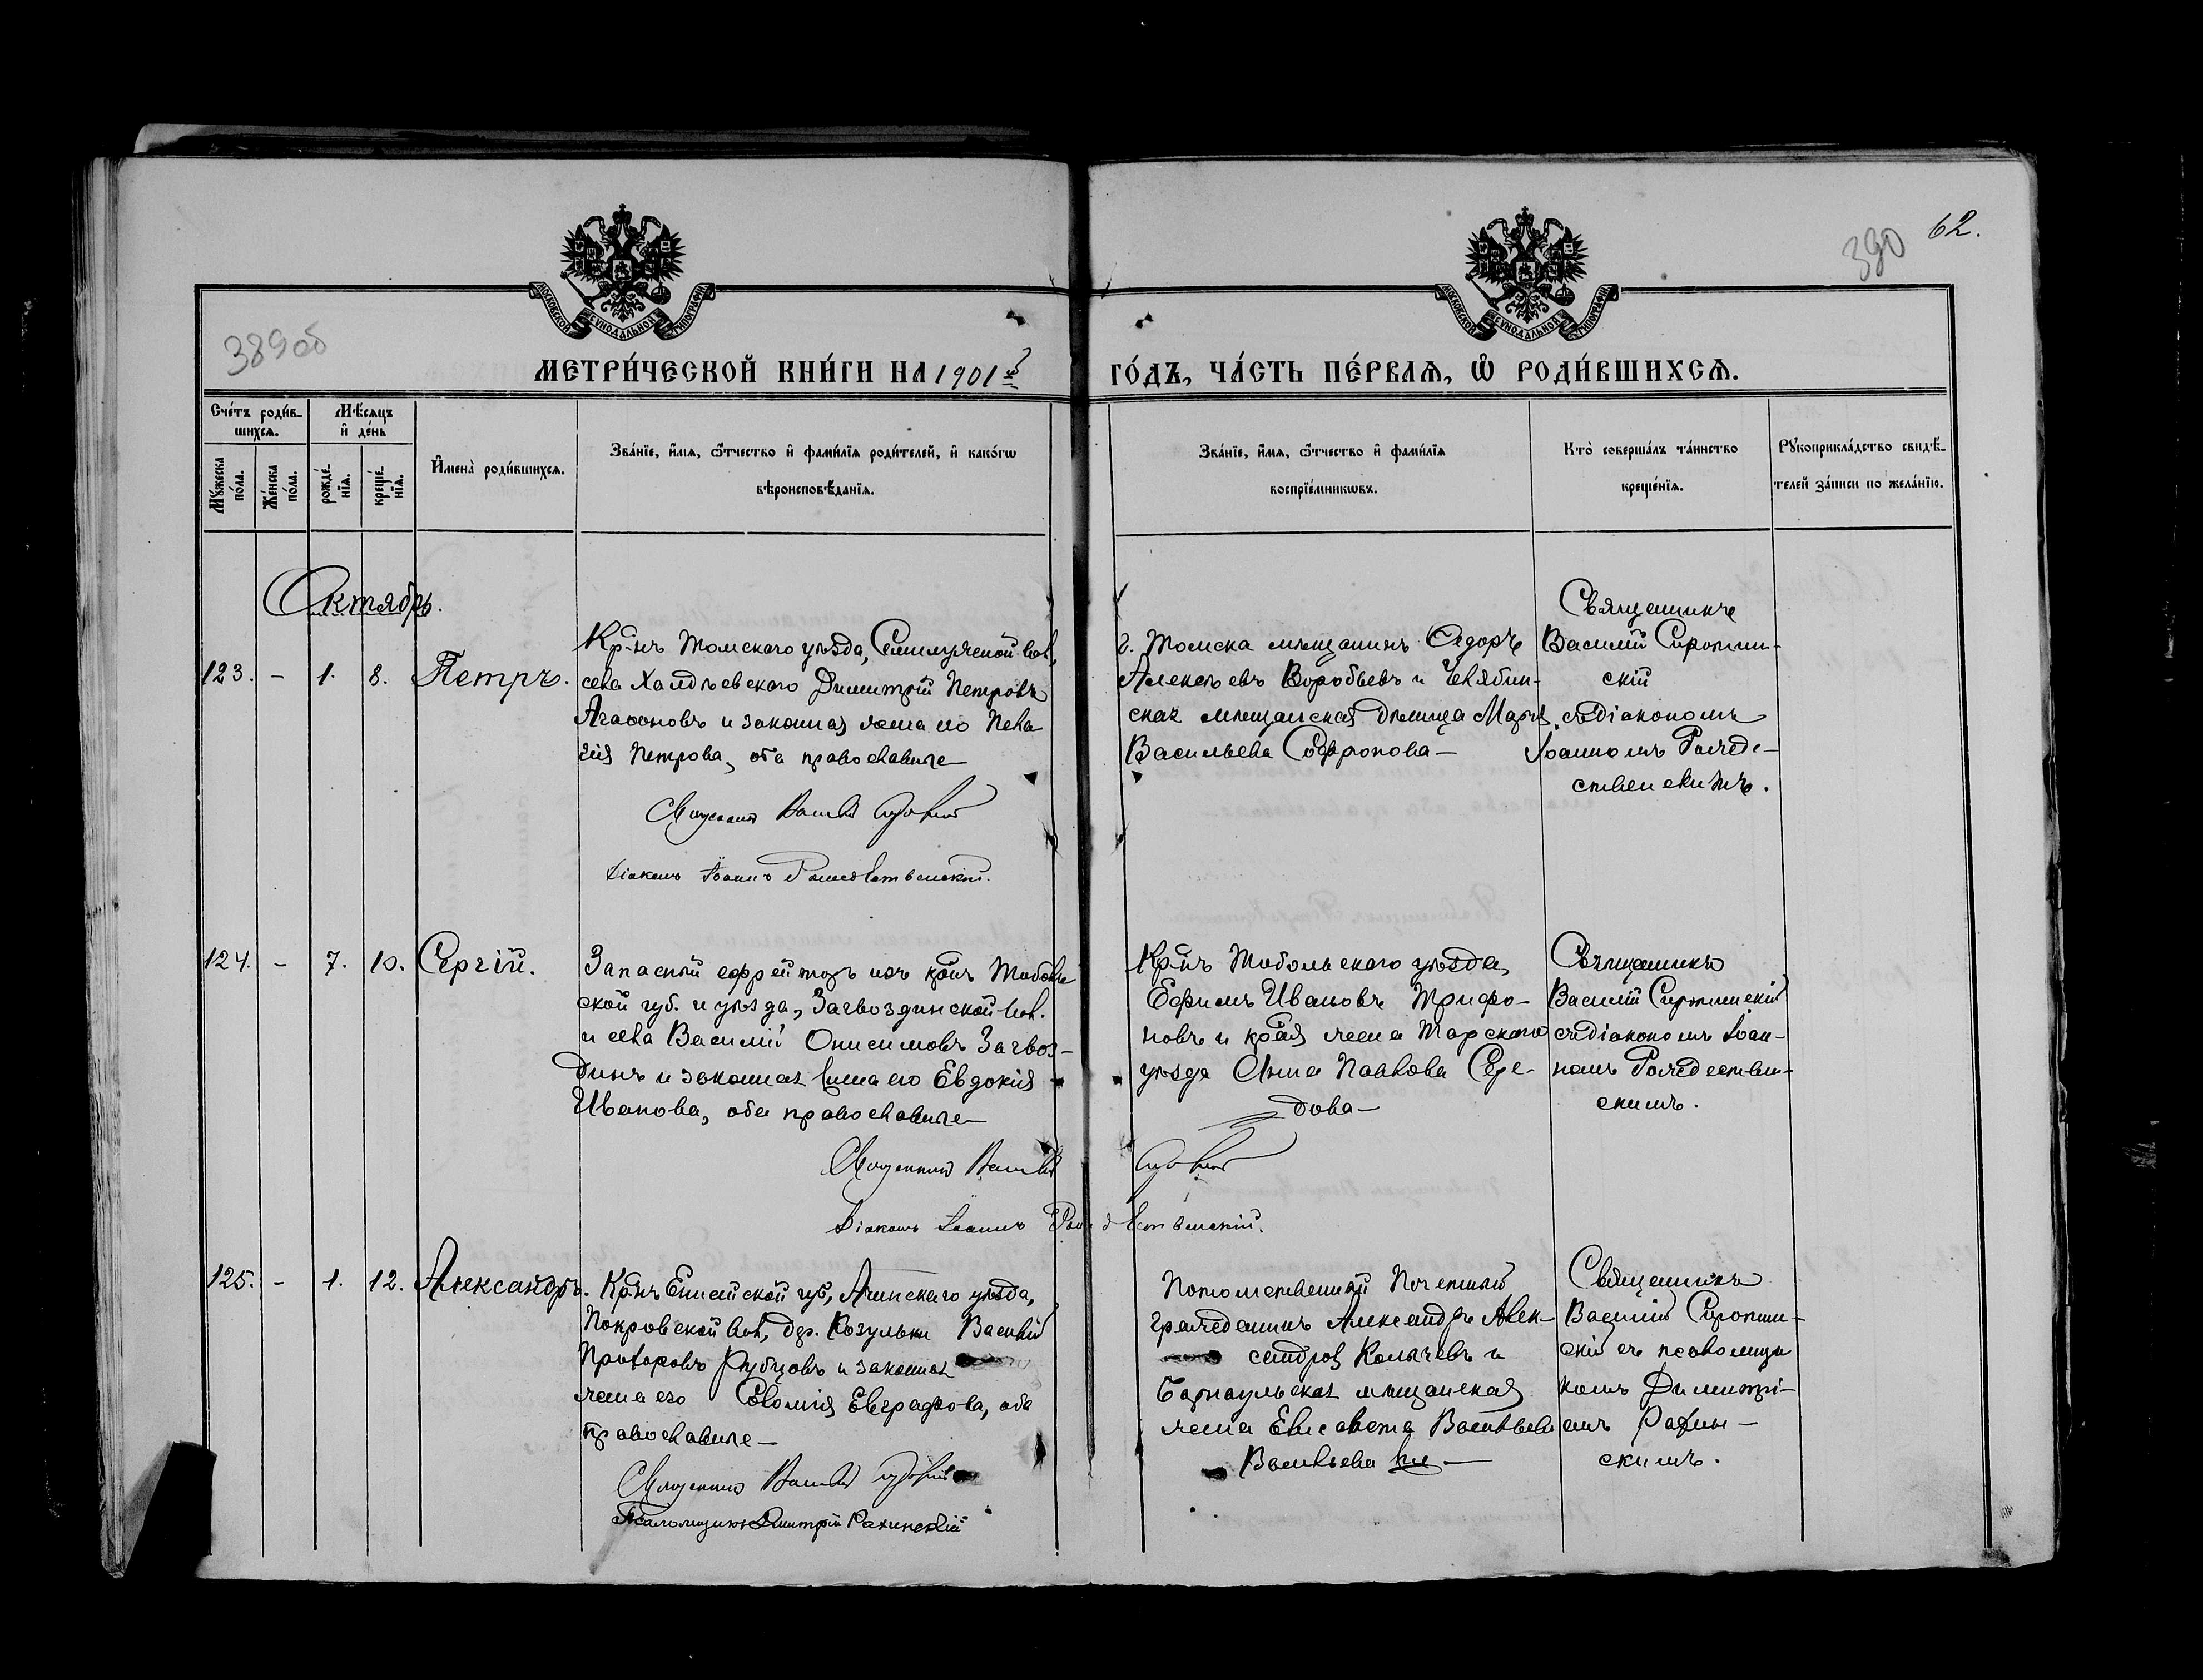 62.
390
389об
МОСКОВСКОЙ СУНОДАЛЬНОЙ ТИПОГРАФІИ
МОСКОВСКОЙ СУНОДАЛЬНОЙ ТИПОГРАФІИ
МЕТРИ́ЧЕСКОЙ КНИ́ГИ НА 1901й ГО́ДЪ, ЧА́СТЬ ПЕ́РВАѦ, Ѿ РОДИ́ВШИХСѦ.
Сче́тъ роди́в-
шихсѧ.
Мѣ́сѧцъ
и҆ де́нь
Мꙋ́жеска
по́ла.
Же́нска
по́ла.
рожде́-
нїѧ.
креще́-
нїѧ.
И҆мена̀ роди́вшихсѧ.
Зва́нїе, и҆́мѧ, ѻ҆́тчество и҆ фами́лїѧ роди́телей, и҆ како́гѡ
вѣроисповѣ́данїѧ.
Зва́нїе, и҆́мѧ, ѻ҆́тчество и҆ фами́лїѧ
воспрїе́мникѡвъ.
Кто̀ соверша́лъ та́инство
креще́нїѧ.
Рꙋкоприкла́дство свидѣ́-
телей за́писи по жела́нїю.
Октябрь.
123. - 1. 8. Петръ.
Кр-нъ Томскаго уѣзда, Семилужной вол,
села Халдѣевскаго Димитрій Петровъ
Агаѳоновъ и законная жена его Пела
гія Петрова, оба православные
Священникъ Василій
Діаконъ Іоаннъ Рождественскій.
г. Томска мѣщанинъ Ѳедоръ
Алексѣевъ Воробьевъ и Челябин-
ская мѣщанская дѣвица Марія
Васильева Софронова—
Священникъ
Василій Сиротин-
скій
съ діакономъ
Іоанномъ Рожде-
ственскимъ.
124. - 7. 10. Сергій.
Запасный ефрейторъ изъ крнъ Тоболь
ской губ. и уѣзда, Загвоздинской вол.
и села Василій Онисимовъ Загвоз-
динъ и законная жена его Евдокія
Иванова, оба православные—
Священникъ Василій
Діаконъ Іоаннъ Рождественскій.
Крнъ Тобольскаго уѣзда,
Ефимъ Ивановъ Трифо-
новъ и кр-ая жена Тарскаго
уѣзда Анна Павлова Сере-
дова—
Священникъ
Василій Сиротинскій
съ діакономъ Іоан-
номъ Рождествен-
скимъ.
125. - 1. 12. Александръ.
Кр-нъ Енисейской губ, Ачинскаго уѣзда,
Покровской вол, дер. Козульки Василій
Прохоровъ Рубцовъ и законная
жена его Евѳимія Евграфова, оба
православные—
Священникъ Василій
Псаломщикъ Димитрій
Потомственный Почетный
гражданинъ Александръ Алек-
сандров Колычевъ и
Барнаульская мѣщанская
жена Елисавета Васильева
Васильева
Священникъ
Василій Сиротин-
скій съ псаломщи
комъ Димитрі-
емъ
скимъ.